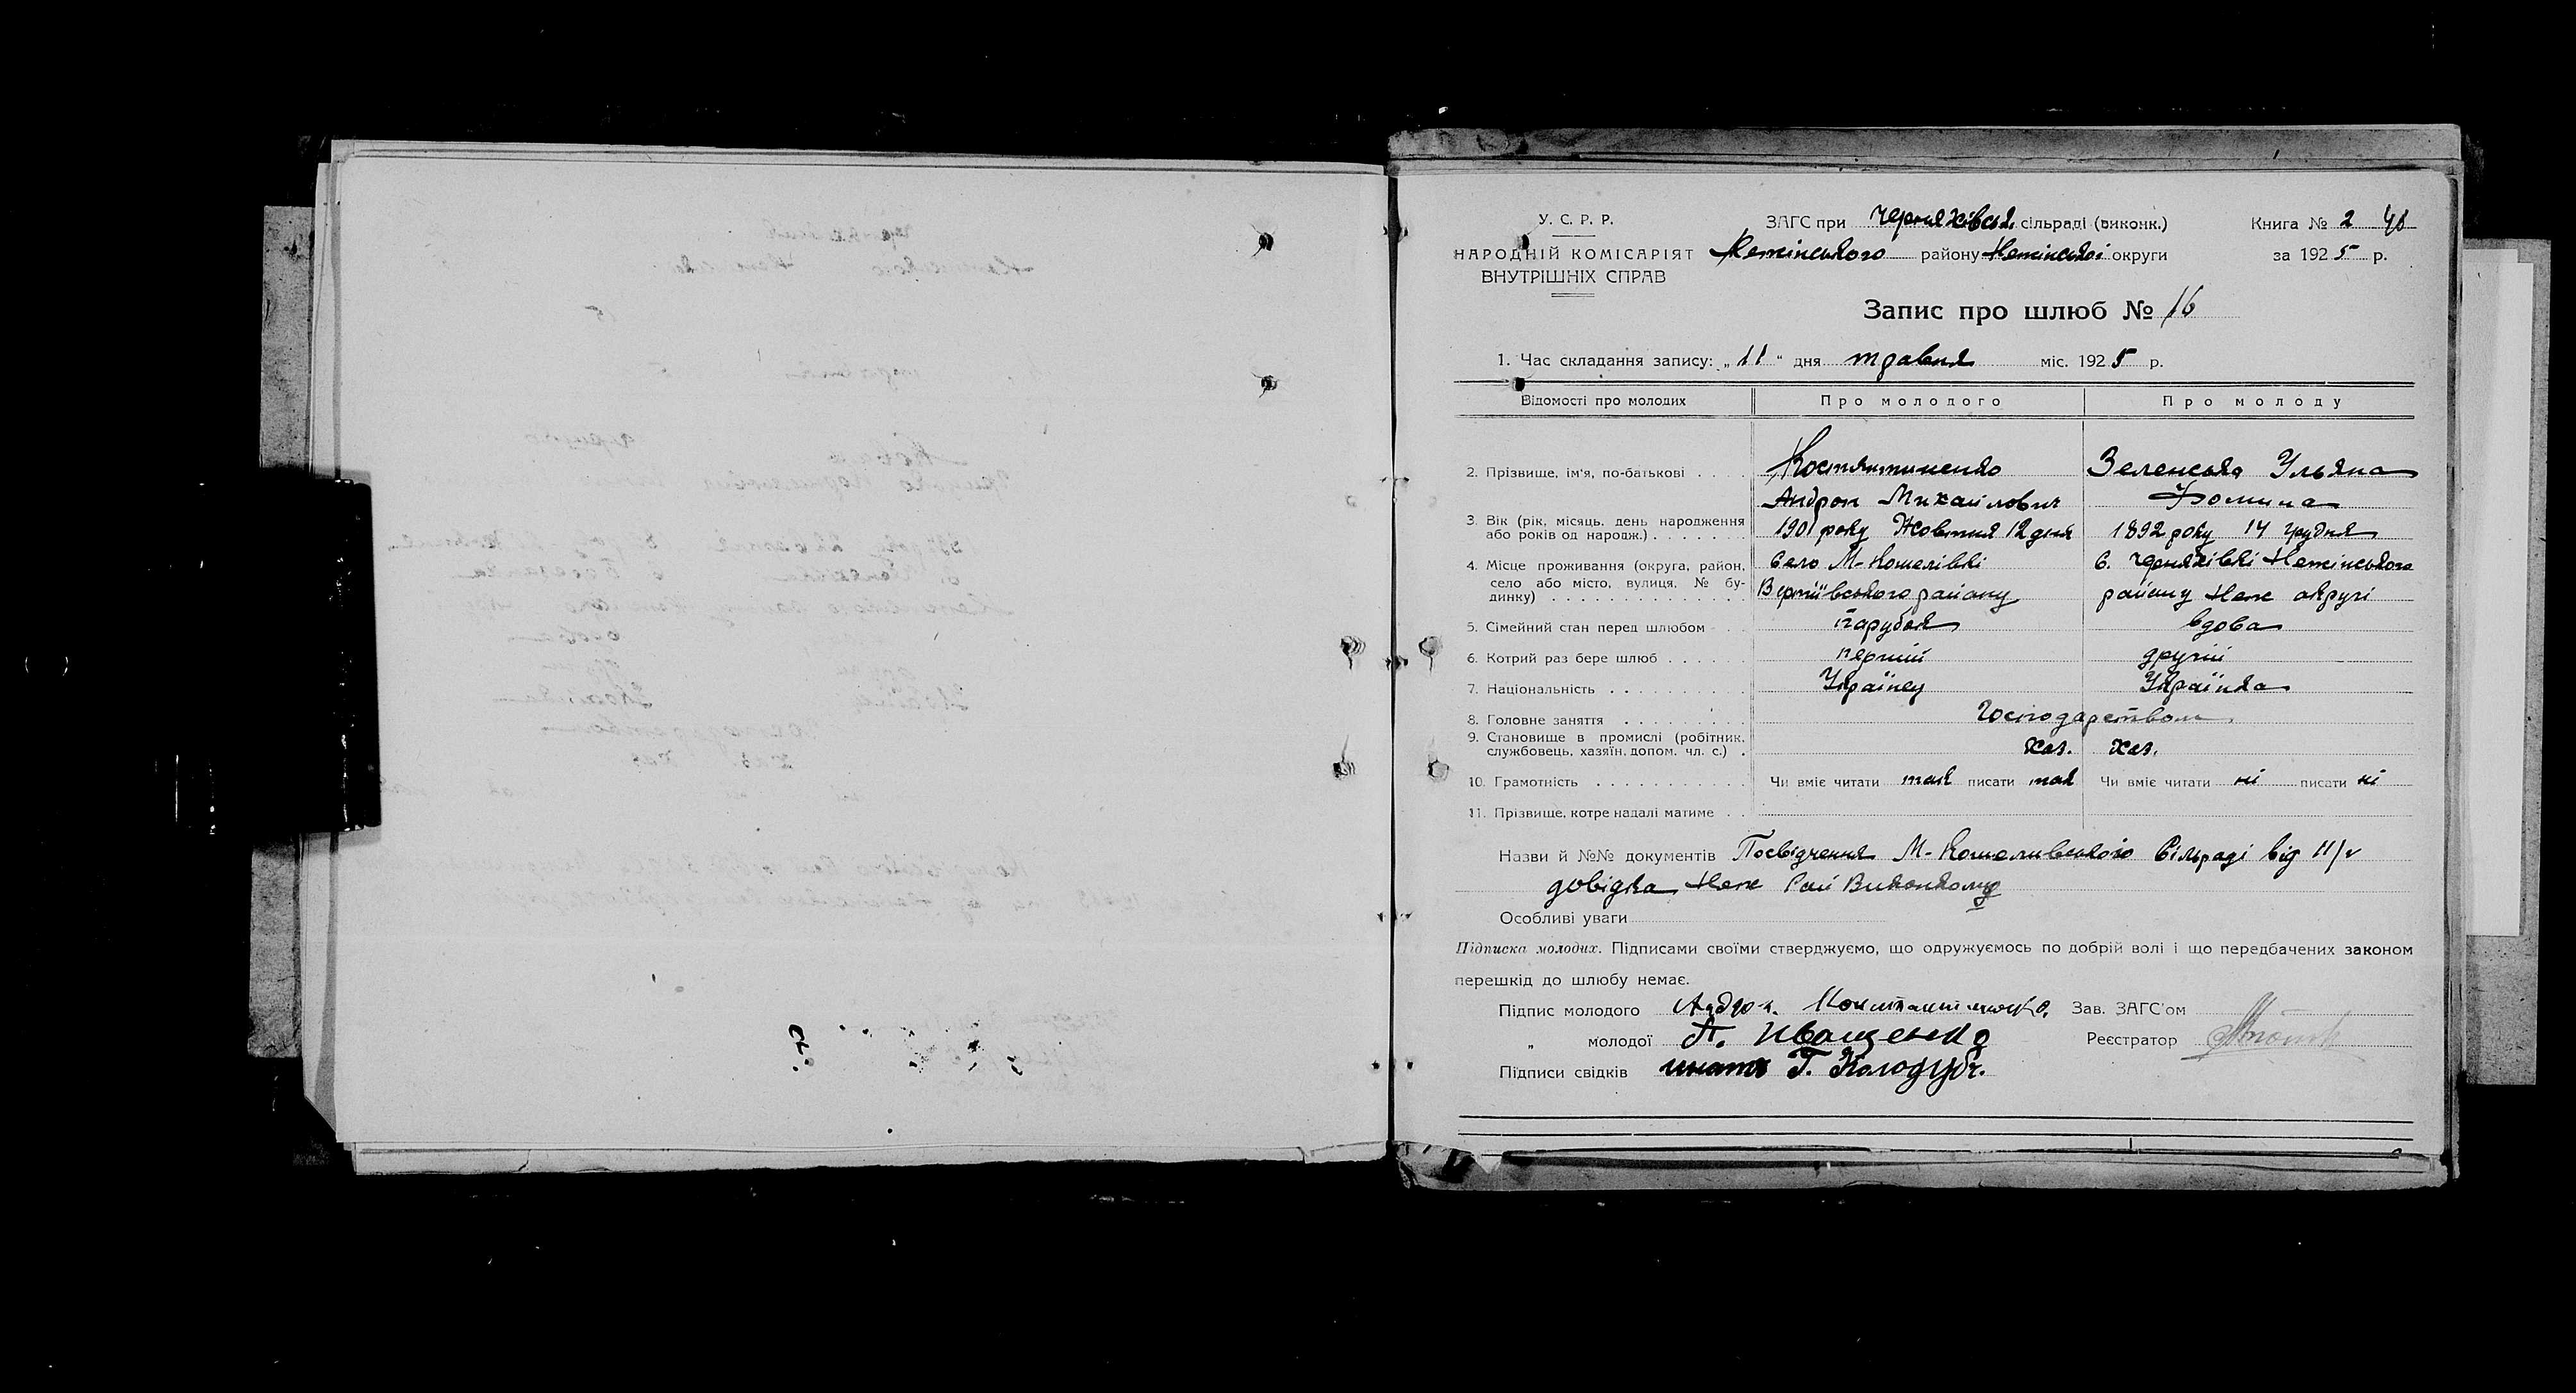 У. С. Р. Р.
НАРОДНІЙ КОМІСАРІЯТ
ВНУТРІШНІХ СПРАВ
ЗАГС при Черняхівсь. сільраді (виконк.)
Неженського району Неженської округи
Книга № 2 48
за 1925 р.
Запис про шлюб № 16
1. Час складання запису: „11" дня травня міс. 1925 р.
Відомості про молодих Про молодого Про молоду
2. Прізвище, ім'я, по-батькові Костянтиненко Зеленська Ульяна
Андрон Михайлович Фомина
3. Вік (рік, місяць, день народження 1901 року Жовтня 12 дня 1892 року 14 грудня
або років од народж.)
4. Місце проживання (округа, район, село М-Кошелівкі С. Черняхівкі Неженського
село або місто, вулиця, № бу-
динку) Вертіївського району району Неж округі
5. Сімейний стан перед шлюбом парубок вдова
6. Котрий раз бере шлюб перший другий
7. Національність Українец Українка
8. Головне заняття Господарством
9. Становище в промислі (робітник, хаз. хаз.
службовець, хазяїн, допом. чл. с.)
10. Грамотність Чи вміє читати так писати так Чи вміє читати ні писати ні
11. Прізвище, котре надалі матиме
Назви й №№ документів Посвідчення М-Кошеливського Сільраді від 11/v
довідка Неж Рай Виконкому
Особливі уваги
Підписка молодих. Підписами своїми стверджуємо, що одружуємось по добрій волі і що передбачених законом
перешкід до шлюбу немає.
Підпис молодого Андрон Зав. ЗАГС'ом
„ молодої П. Иващенко Реєстратор
Підписи свідків Г. Колодуб.